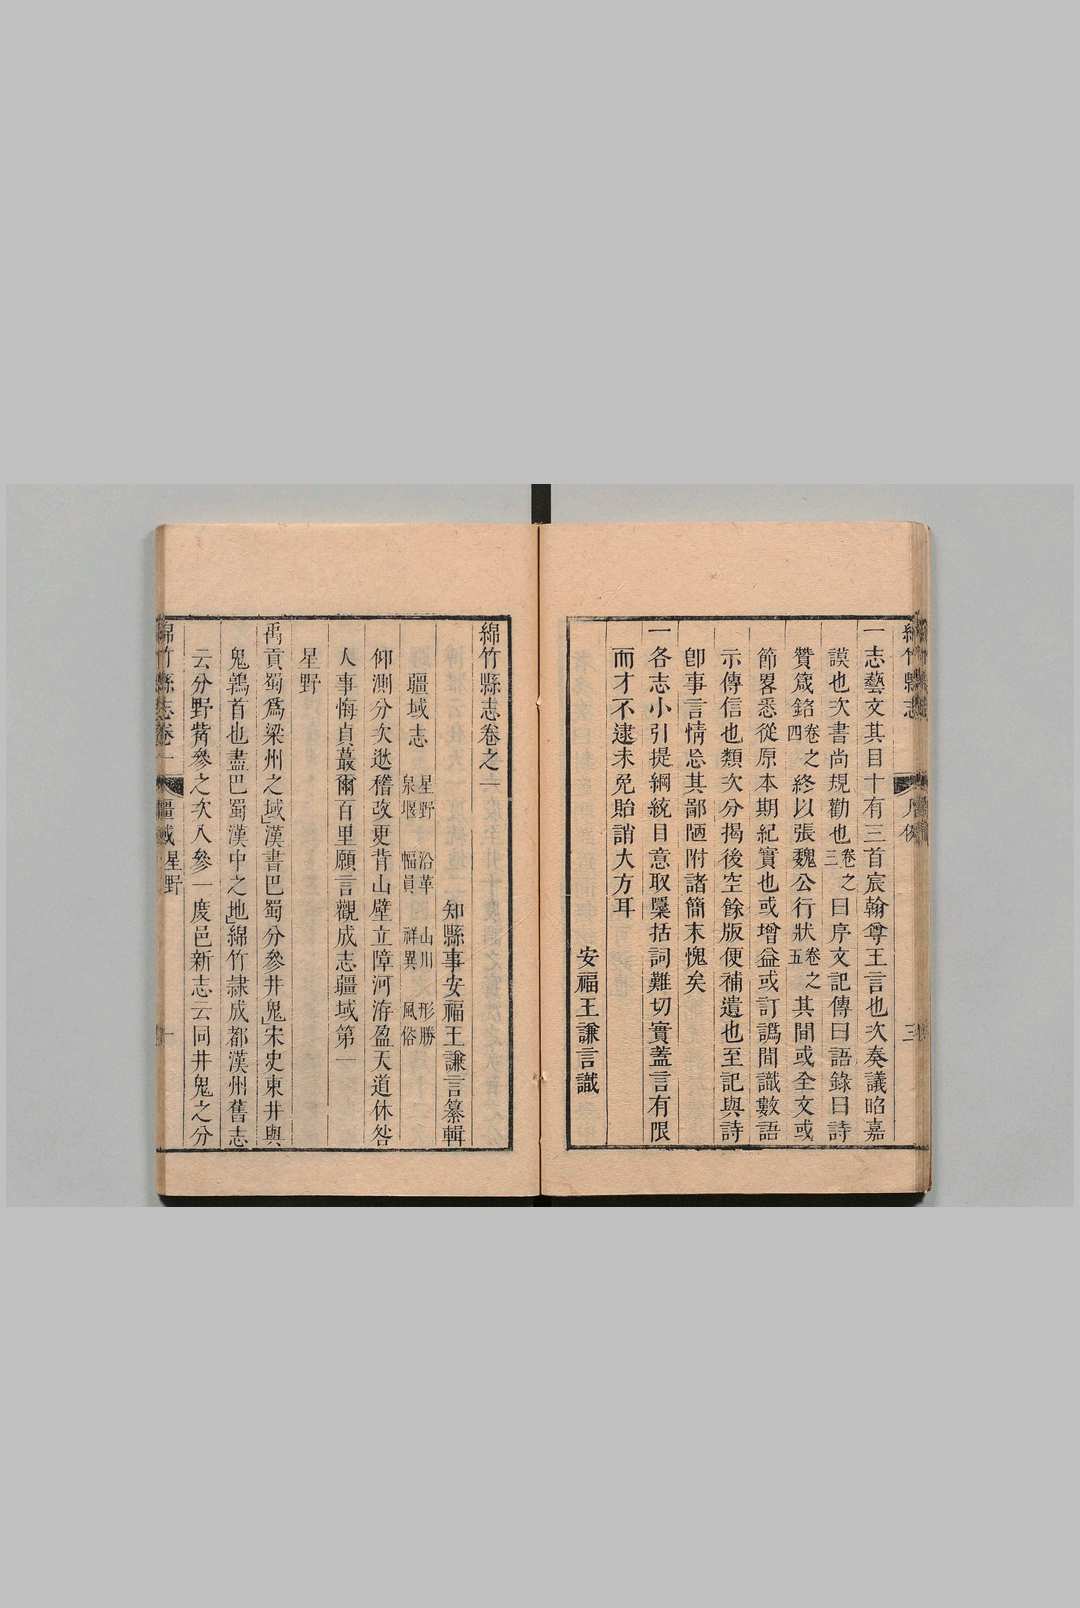 綿竹縣志
凡例
三
一志藝文其目十有三首宸翰尊王言也次奏議昭嘉
謨也次書尚規勸也卷之三曰序文記傳曰語錄曰詩
贊箴銘卷之四終以張魏公行狀卷之五其間或全文或
節畧悉從原本期紀實也或增益或訂譌間識數語
示傳信也類次分揭後空餘版便補遺也至記與詩
卽事言情忘其鄙陋附諸簡末愧矣
一各志小引提綱統目意取檃括詞難切實蓋言有限
而才不逮未免貽誚大方耳
安福王謙言識
綿竹縣志卷之一
知縣事安福王謙言纂輯
疆域志 星野 沿革 山川 形勝
泉堰 幅員 祥異 風俗
仰測分次逖稽改更背山壁立障河洊盈天道休咎
人事悔貞蕞爾百里願言觀成志疆域第一
星野
禹貢蜀爲梁州之域漢書巴蜀分參井鬼宋史東井與
鬼鶉首也盡巴蜀漢中之地綿竹隷成都漢州舊志
云分野觜參之次入參一度邑新志云同井鬼之分
綿竹縣志卷一
疆域
星野
一